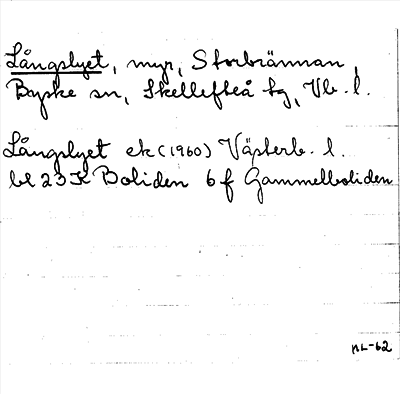 Långslyet, myr, Storbrännan,
Byske sn, Skellefteå tg, Vb. l.
Långslyet ek (1960) Västerb. l.
bl 23 K Boliden 6 f Gammelboliden
NL-62